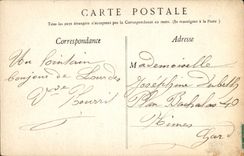 CARTE POSTALE
Tous les pays étrangers n'acceptent pas la Correspondance au recto. (Se renseigner à la Poste)
Correspondance
Adresse
Un lointain
bonjour de Lourdes
Mademoiselle
Joséphine
Plan Bachalas 40
Nîmes
Gard